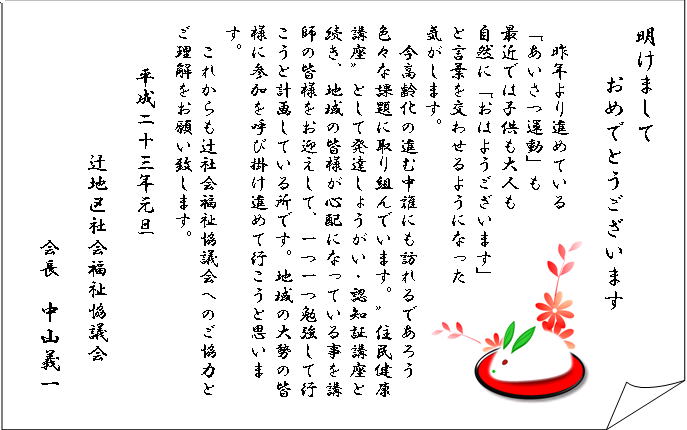 明けまして
おめでとうございます
昨年より進めている
「あいさつ運動」も
最近では子供も大人も
自然に「おはようございます」
と言葉を交わせるようになった
気がします。
今高齢化の進む中誰にも訪れるであろう
色々な課題に取り組んでいます。〝住民健康
講座〟として発達しょうがい・認知証講座と
続き、地域の皆様が心配になっている事を講
師の皆様をお迎えして、一つ一つ勉強して行
こうと計画している所です。地域の大勢の皆
様に参加を呼び掛け進めて行こうと思いま
す。
これからも辻社会福祉協議会へのご協力と
ご理解をお願い致します。
平成二十三年元旦
辻地区社会福祉協議会
会長 中山義一